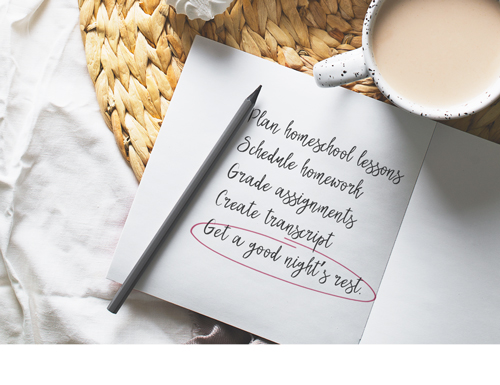 Plan homeschool lessons
Schedule homework
Grade assignments
Create transcript
Get a good night's rest.